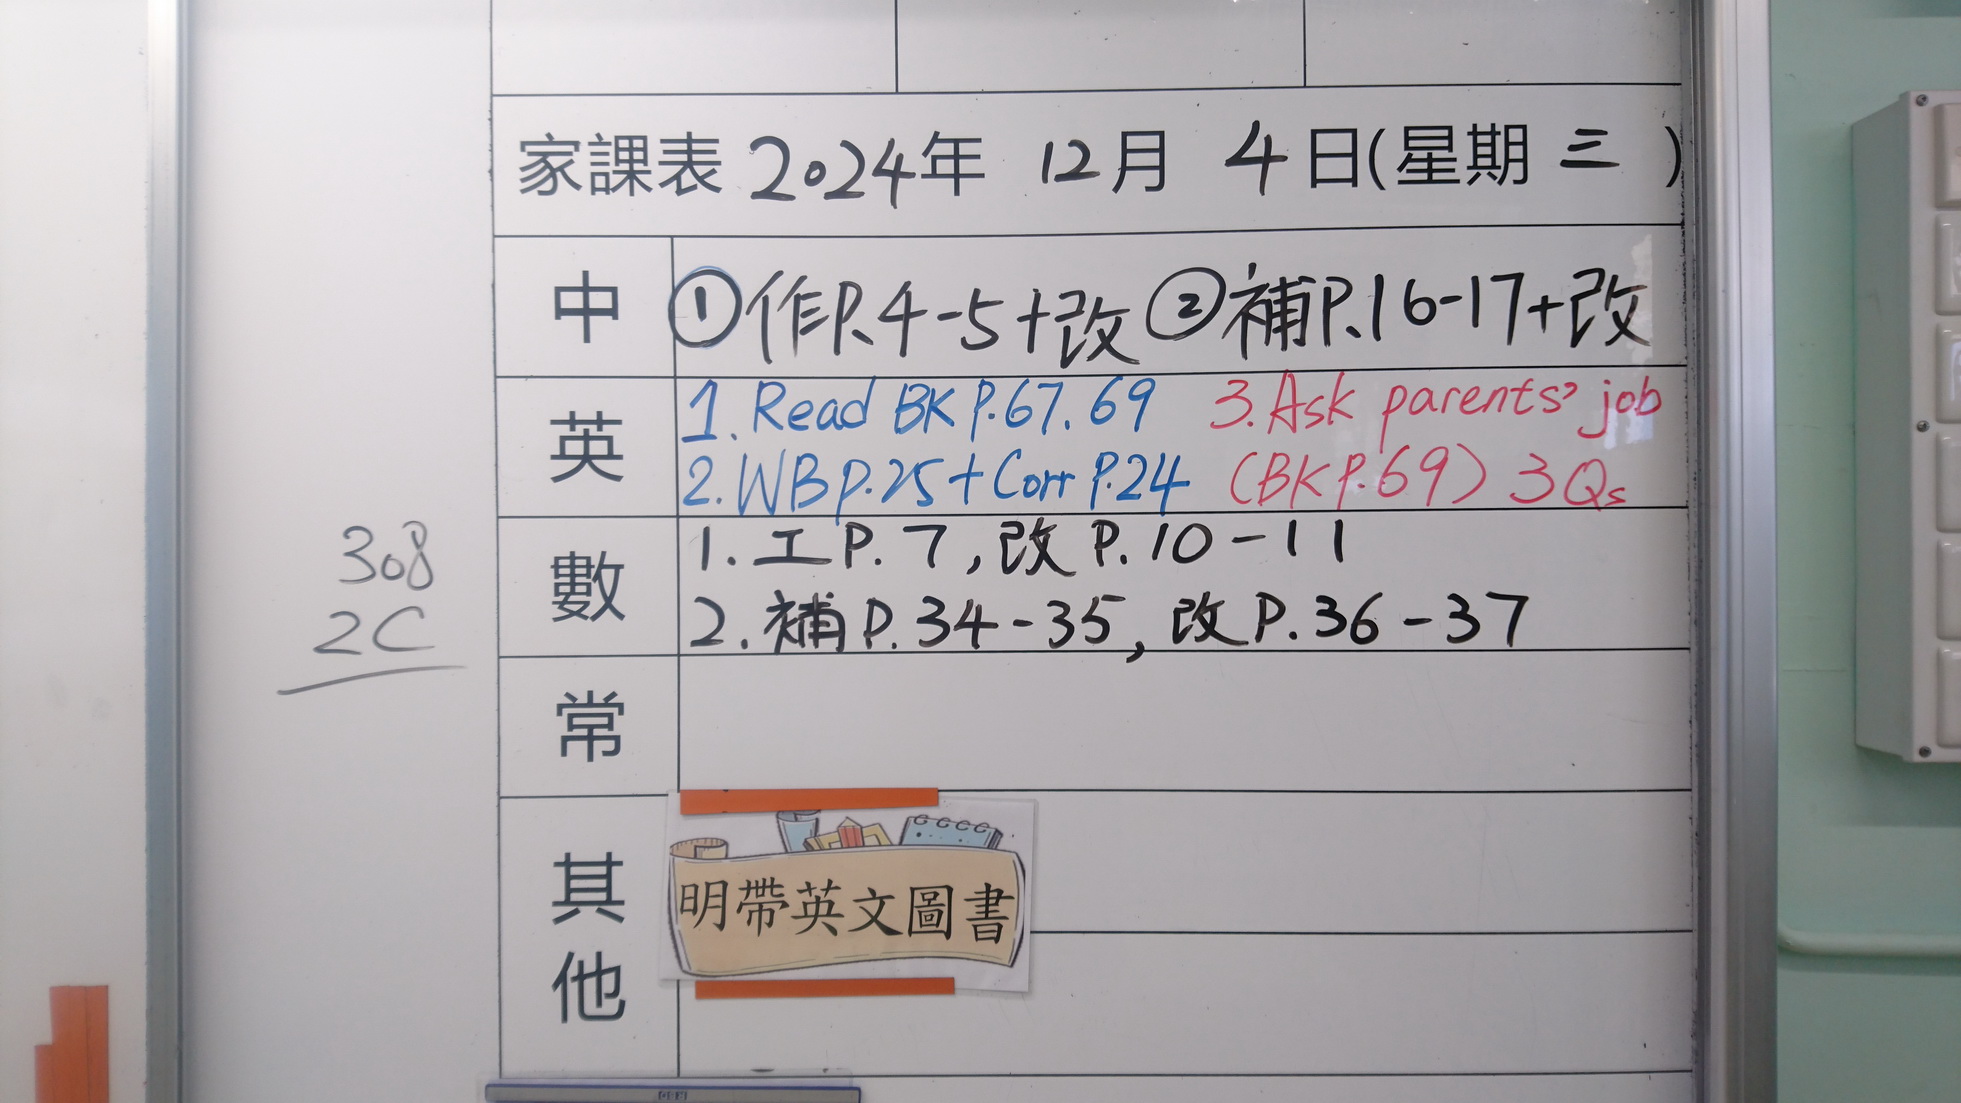 家課表 2024年 12月 4日(星期三)
中 ①作P.4-5+改 ②補P.16-17+改
英 1. Read BK P.67. 69 3. Ask parents' job
2. WB P.25 + Corr P.24 (BK P.69) 3Qs
數 1. 工P. 7, 改P. 10-11
2. 補P. 34-35, 改P. 36-37
308
2C
常
其他
明帶英文圖書